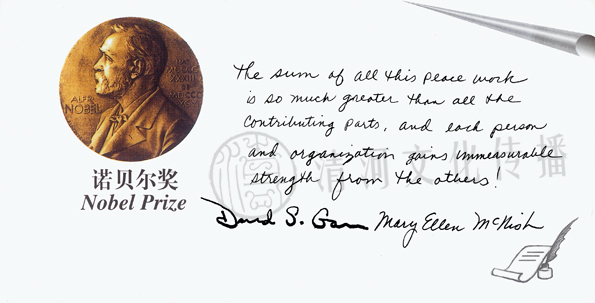 ALFR.
NOBEL
诺贝尔奖
Nobel Prize
The sum of all this peace work
is so much greater than all the
contributing parts, and each person
and organization gains immeasurable
strength from the others!
文化传播
David S. Mary Ellen McNish